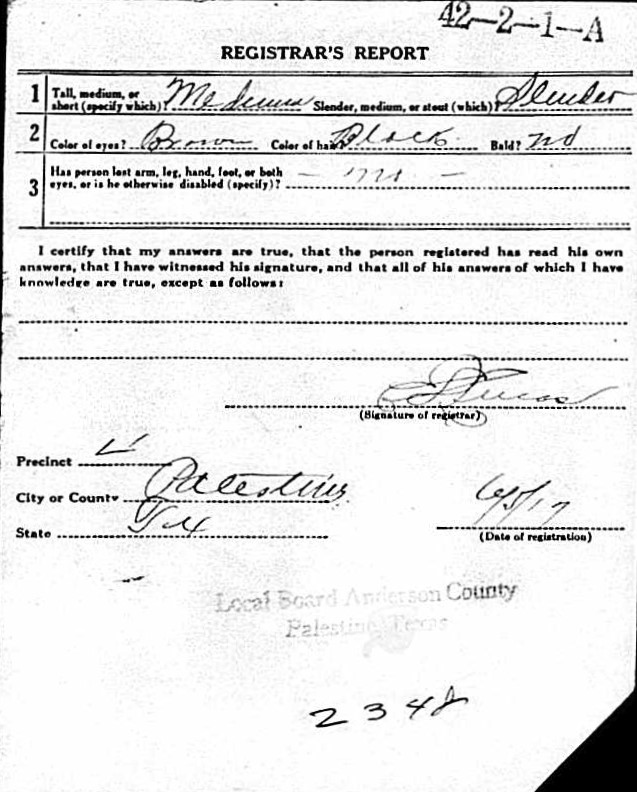 42-2-1-A
REGISTRAR'S REPORT
1 Tall, medium, or short (specify which)? Medium Slender, medium, or stout (which)? Slender
2 Color of eyes? Brown Color of hair? Black Bald? No
3 Has person lost arm, leg, hand, foot, or both
eyes, or is he otherwise disabled (specify)? - no -
I certify that my answers are true, that the person registered has read his own
answers, that I have witnessed his signature, and that all of his answers of which I have
knowledge are true, except as follows:
(Signature of registrar)
Precinct
City or County Palestine
State Tex 6/5/17
(Date of registration)
Local Board Anderson County
Palestine, Texas
2348